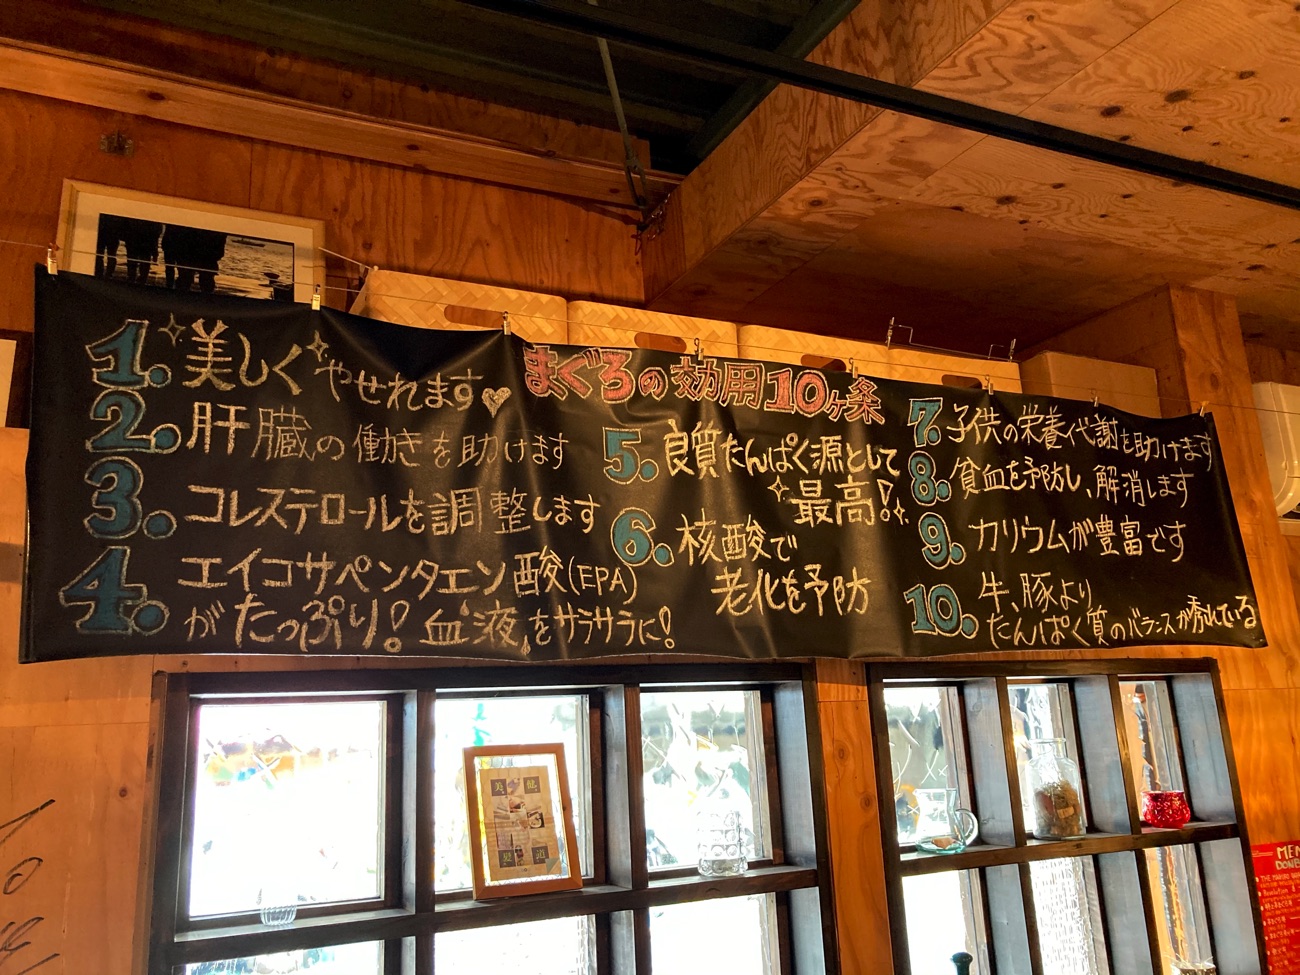 まぐろの効用10ヶ条
1. 美しくやせれます♡
2. 肝臓の働きを助けます
3. コレステロールを調整します
4. エイコサペンタエン酸(EPA)
がたっぷり!血液をサラサラに!
5. 良質たんぱく源として
最高!
6. 核酸で
老化を予防
7. 子供の栄養代謝を助けます
8. 貧血を予防し、解消します
9. カリウムが豊富です
10. 牛、豚より
たんぱく質のバランスが秀れている